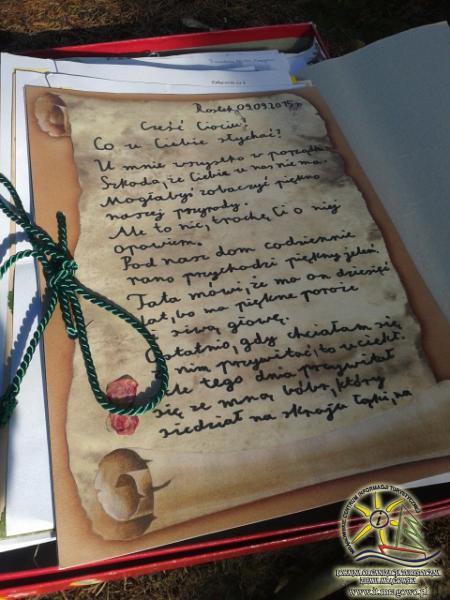 Rostek 09.09.2015r.
Cześć Ciociu!
Co u Ciebie słychać?
U mnie wszystko w porządku.
Szkoda, że Ciebie u nas nie ma.
Mogłabyś zobaczyć piękno
naszej przyrody.
Ale to nic, trochę Ci o niej
opowiem.
Pod nasz dom codziennie
rano przychodzi piękny jeleń.
Tata mówi, że ma on dziesięć
lat, bo ma piękne poroże
i siwą głowę.
Ostatnio, gdy chciałam się
z nim przywitać, to uciekł.
Ale tego dnia przywitał
się ze mną bóbr, który
siedział na skraju łąki, na
LOKALNA ORGANIZACJA TURYSTYCZNA
www.it.mragowo.pl